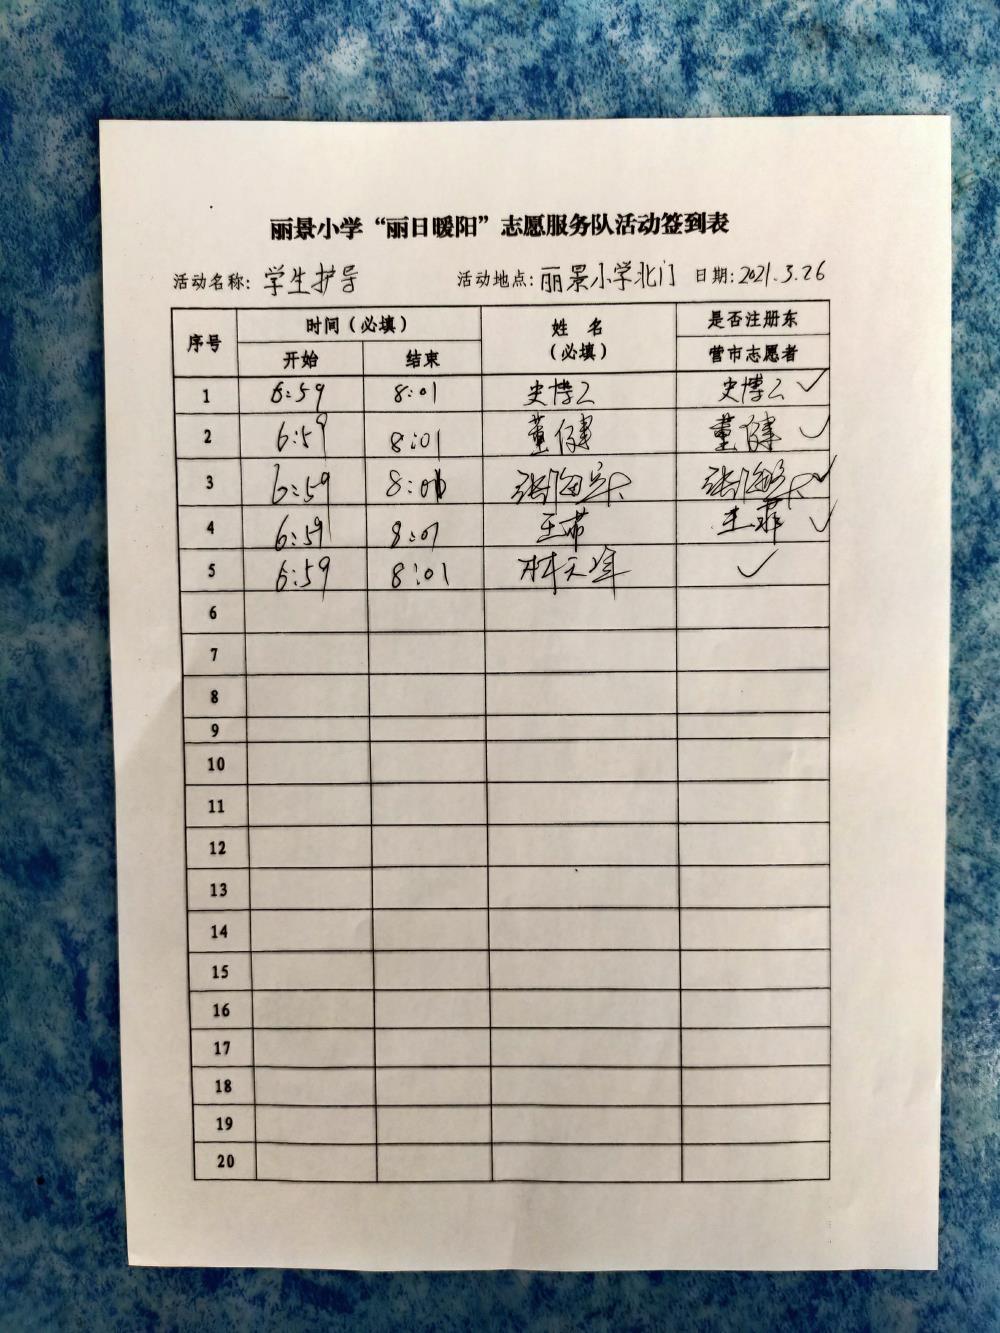 丽景小学“丽日暖阳”志愿服务队活动签到表
活动名称: 学生护导 活动地点: 丽景小学北门 日期: 2021.3.26
序号 时间(必填) 姓 名 (必填) 是否注册东营市志愿者
开始 结束
1 6:59 8:01 史博 史博 ✓
2 6:59 8:01 董健 董健 ✓
3 6:59 8:01 张海 张海 ✓
4 6:59 8:01 王菲 王菲 ✓
5 6:59 8:01 林天 ✓
6
7
8
9
10
11
12
13
14
15
16
17
18
19
20